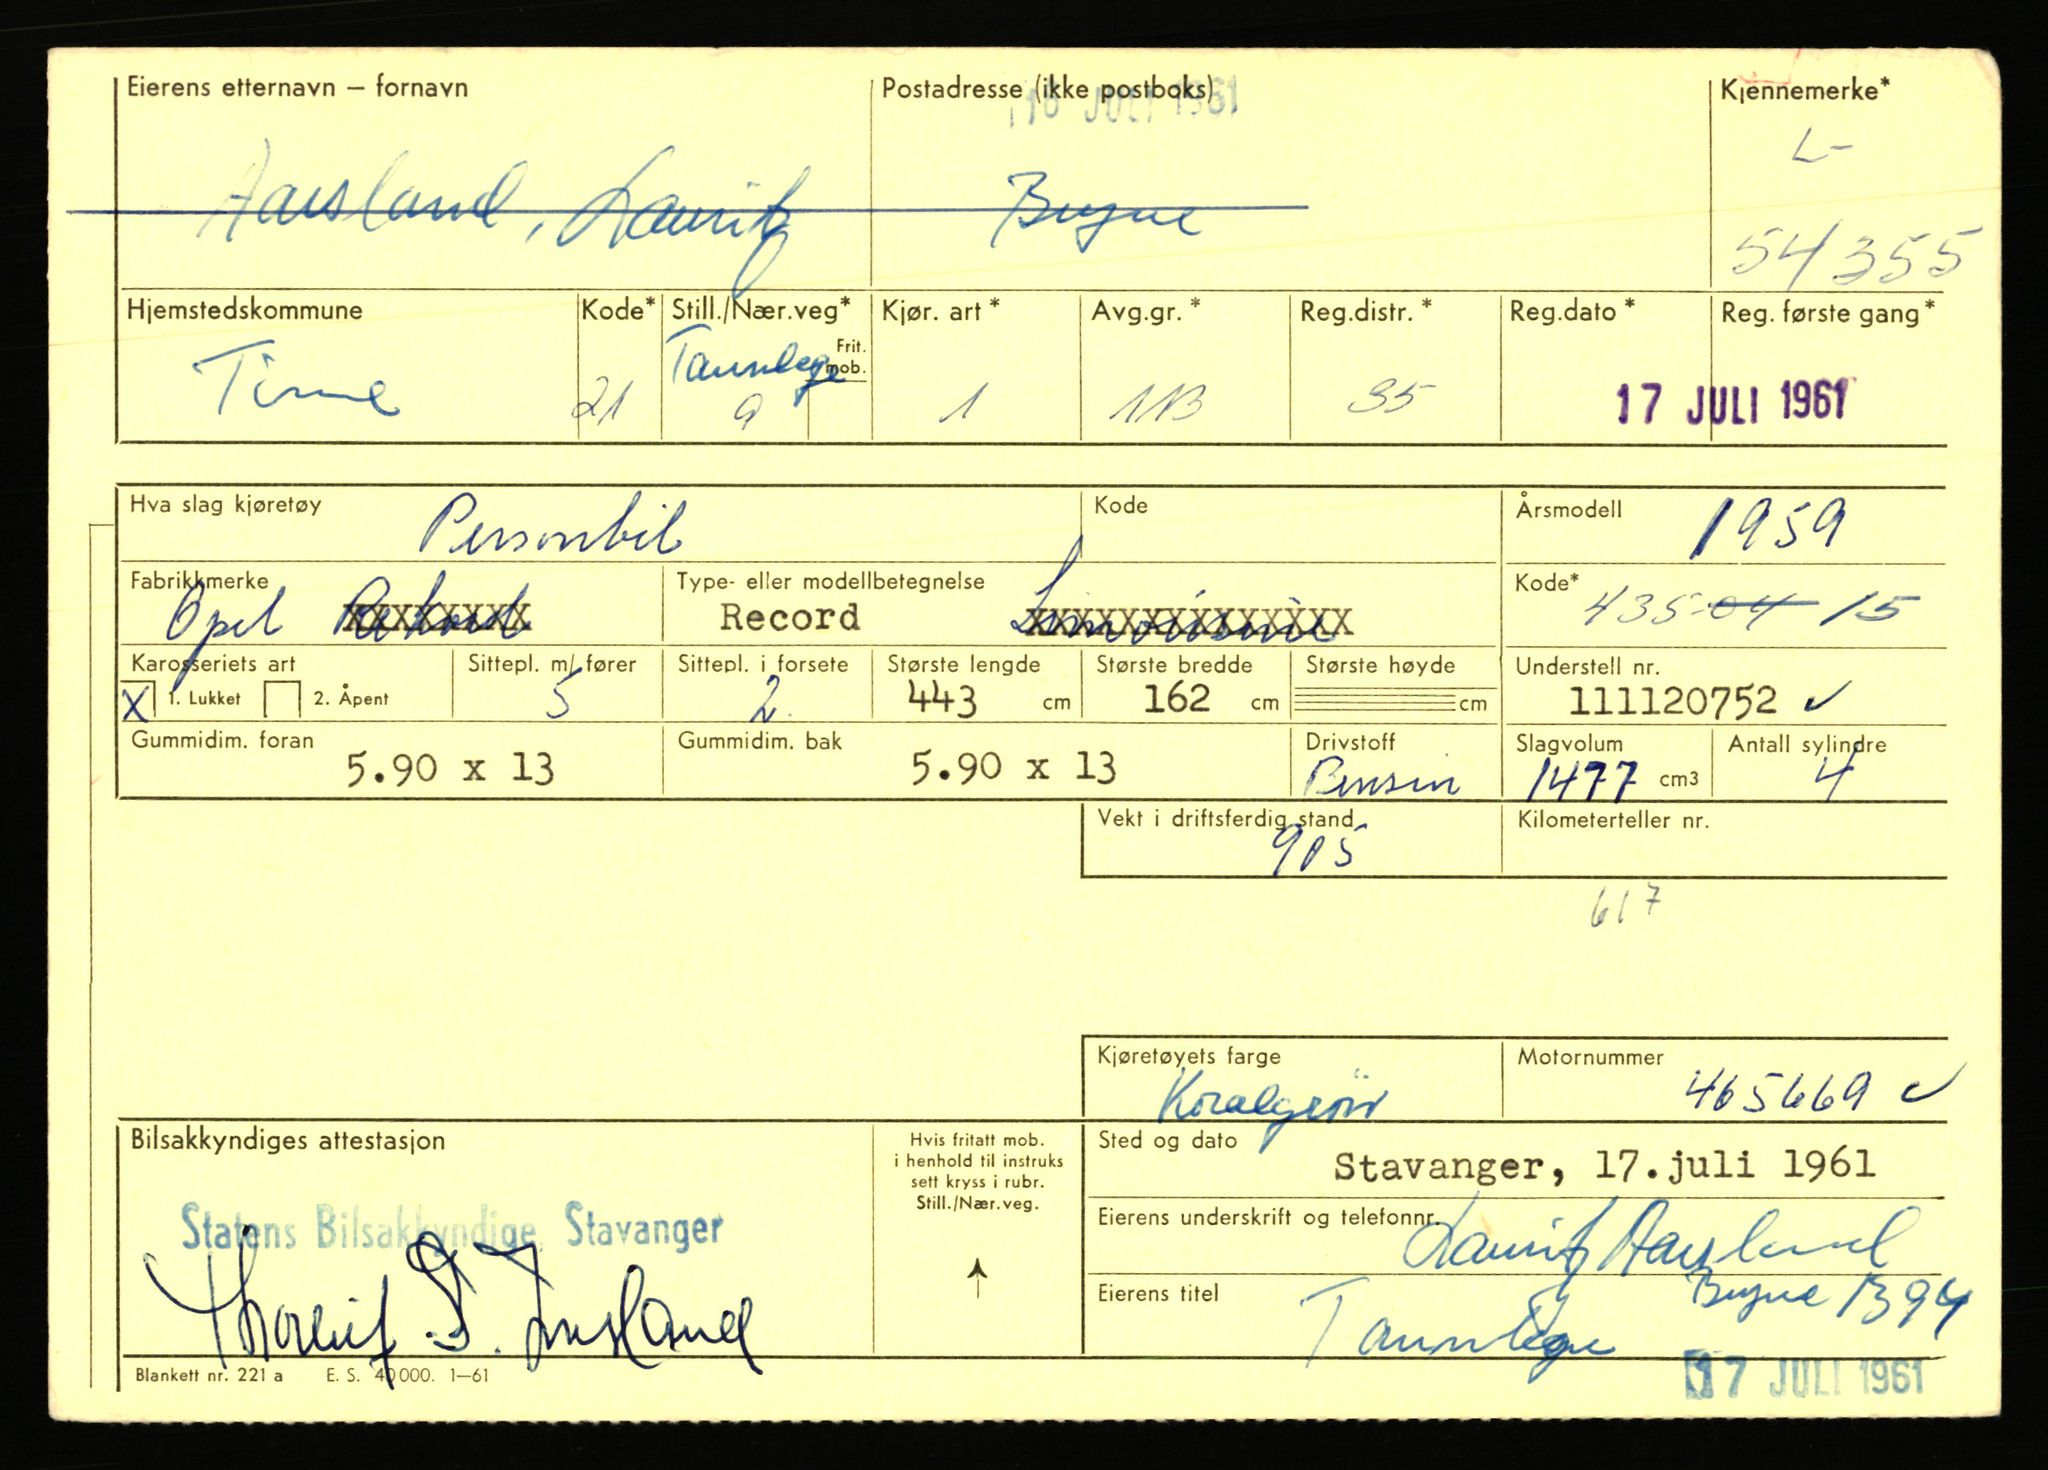 Eierens etternavn – fornavn Postadresse (ikke postboks) Kjennemerke*
JULI 1961
L-
Aarsland, Lauritz Bryne
54355
Hjemstedskommune Kode* Still./Nær.veg* Kjør. art* Avg.gr.* Reg.distr.* Reg.dato* Reg. første gang*
Tannlege Frit. mob.
Time 21 9 1 1B 35 17 JULI 1961
Hva slag kjøretøy Kode Årsmodell
Personbil 1959
Fabrikkmerke Type- eller modellbetegnelse Kode*
Opel Rekord Record Limousine 435-04 15
Karosseriets art Sittepl. m/ fører Sittepl. i forsete Største lengde Største bredde Største høyde Understell nr.
X 1. Lukket 2. Åpent 5 2 443 cm 162 cm cm 111120752 ✓
Gummidim. foran Gummidim. bak Drivstoff Slagvolum Antall sylindre
5.90 x 13 5.90 x 13 Bensin 1477 cm3 4
Vekt i driftsferdig stand Kilometerteller nr.
915
617
Kjøretøyets farge Motornummer
Koralgrön 465669 ✓
Bilsakkyndiges attestasjon
Hvis fritatt mob.
i henhold til instruks
sett kryss i rubr.
Still./Nær.veg.
Sted og dato
Stavanger, 17.juli 1961
Statens Bilsakkyndige, Stavanger
Eierens underskrift og telefonnr.
Lauritz Aarsland
Bryne 1394
Eierens titel
Tannlege
Blankett nr. 221 a E. S. 40000. 1—61
17 JULI 1961